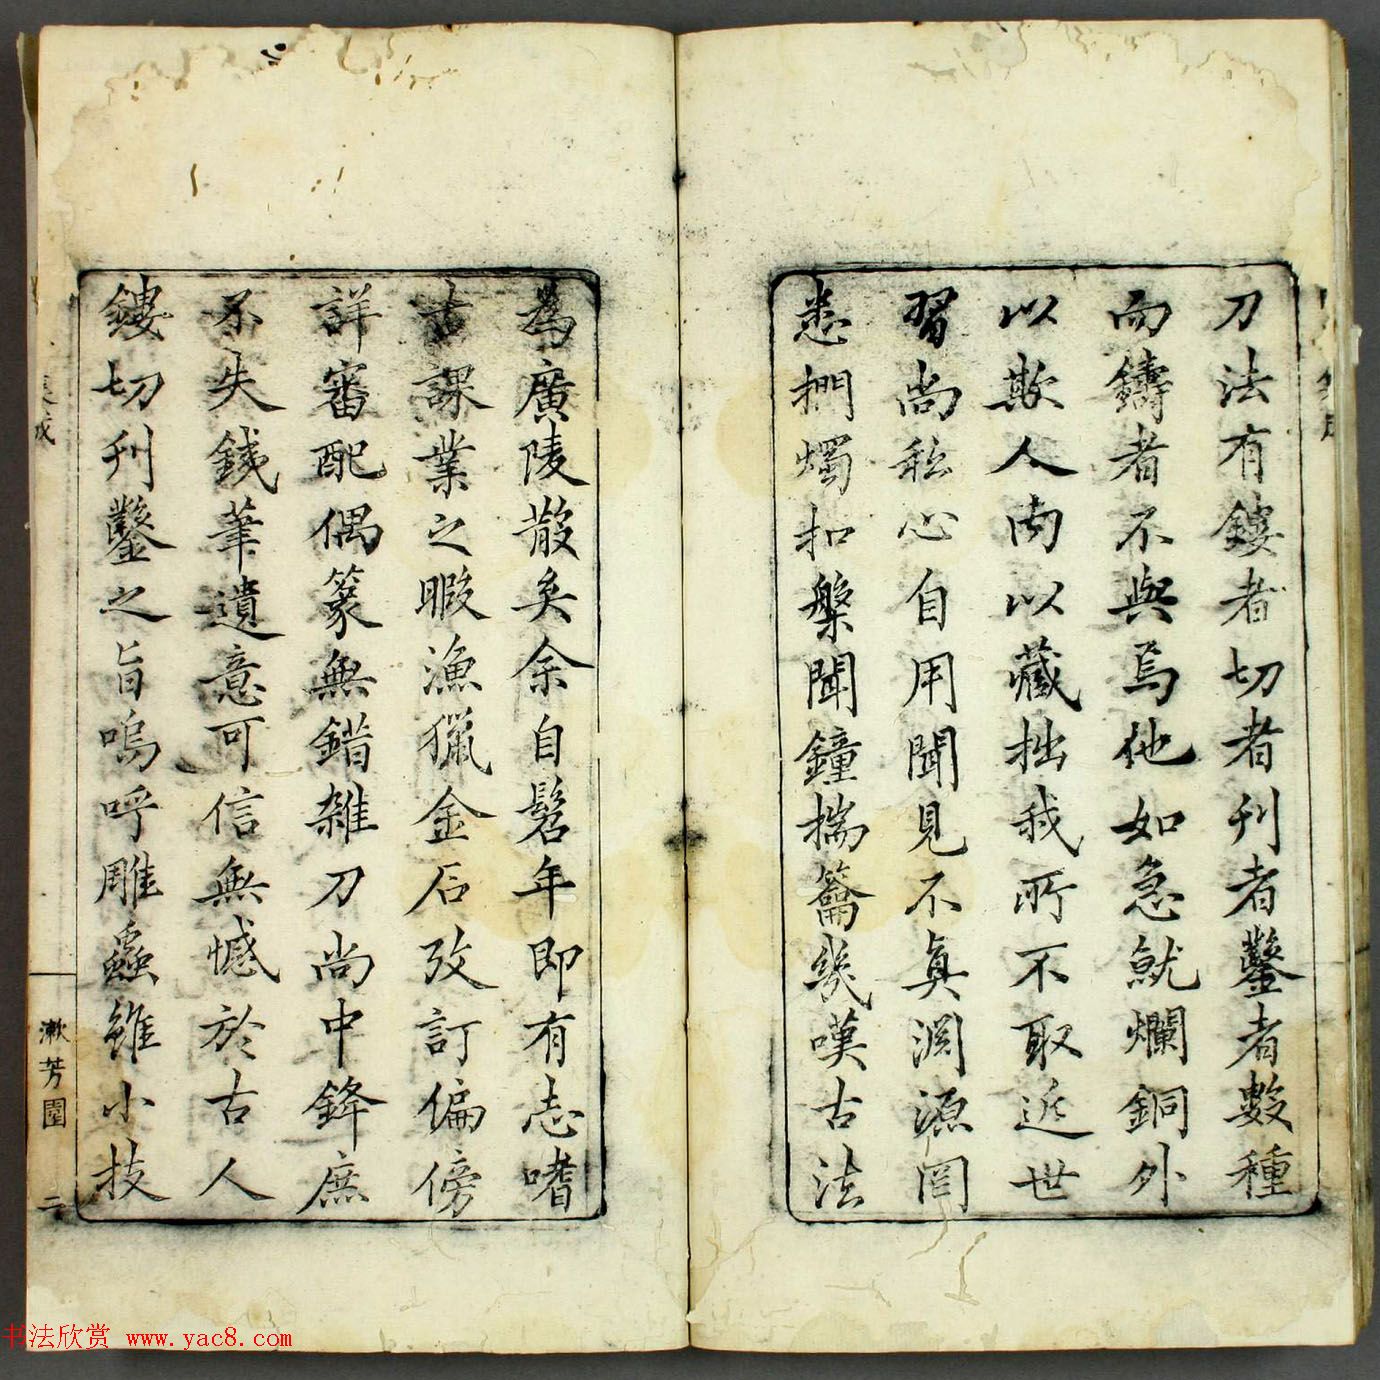 刀法有鏤者切者刋者鑿者數種
而鑄者不與焉他如急就爛銅外
以欺人內以藏拙我所不取近世
習尚私心自用聞見不真淵源罔
悉捫燭扣槃聞鐘揣籥幾嘆古法
為廣陵散矣余自髫年即有志嗜
古課業之暇漁獵金石攷訂偏傍
詳審配偶篆無錯雜刀尚中鋒庶
不失銕筆遺意可信無憾於古人
鏤切刋鑿之旨嗚呼雕蟲雖小技
漱芳園
二
书法欣赏 www.yac8.com